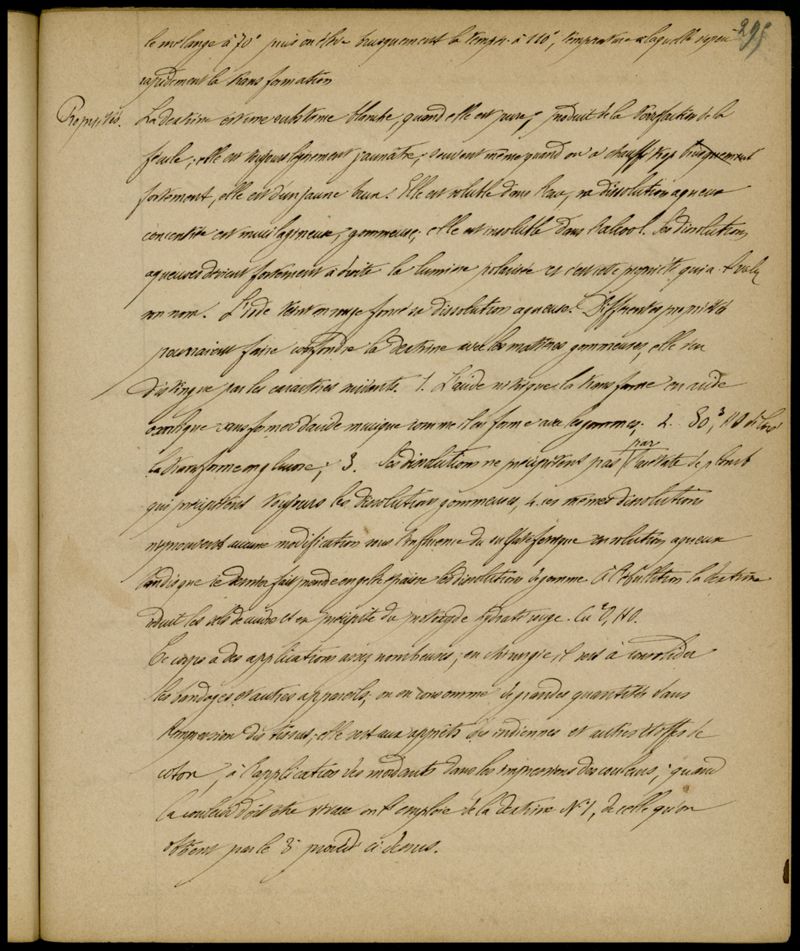 295
le mélange à 70° puis on élève brusquement la temp. à 110°, température à laquelle s'opère
rapidement la transformation
Propriétés. La dextrine est une substance blanche, quand elle est pure; produit de la torréfaction de la
fécule; elle est toujours légèrement jaunâtre; souvent même quand on a chauffé trop brusquement
fortement, elle est d'un jaune brun. Elle est soluble dans l'eau, sa dissolution aqueuse
concentrée est mucilagineuse, gommeuse; elle est insoluble dans l'alcool. Ses dissolutions
aqueuses dévient fortement à droite la lumière polarisée et c'est cette propriété qui a
son nom. L'iode teint en rouge foncé sa dissolution aqueuse. Différentes propriétés
pourraient faire confondre la dextrine avec les matières gommeuses, elle s'en
distingue par les caractères suivants. 1. L'acide nitrique la transforme en acide
oxalique sans former d'acide mucique comme il en forme avec les gommes. 2. SO³, HO
la transforme en glucose; 3. Ses dissolutions ne précipitent pas par l'acétate de plomb
qui précipitent toujours les dissolutions gommeuses, 4. ces mêmes dissolutions
n'éprouvent aucune modification sous l'influence du sulfate ferrique en solution aqueuse
tandis que ce dernier fait prendre en gelée épaisse les dissolutions de gomme. à l'ébullition la dextrine
réduit les sels de cuivre et en précipite du protoxide hydraté rouge. Cu²O, HO.
Ce corps a des applications assez nombreuses; en chirurgie, il sert à consolider
les bandages et autres appareils; on en consomme de grandes quantités dans
l'impression des tissus; elle sert aux apprêts des indiennes et autres étoffes de
coton, à l'application des mordants dans les impressions des couleurs; quand
la couleur doit être vivace on emploie de la dextrine N°1, de celle qu'on
obtient par le 3e procédé ci-dessus.